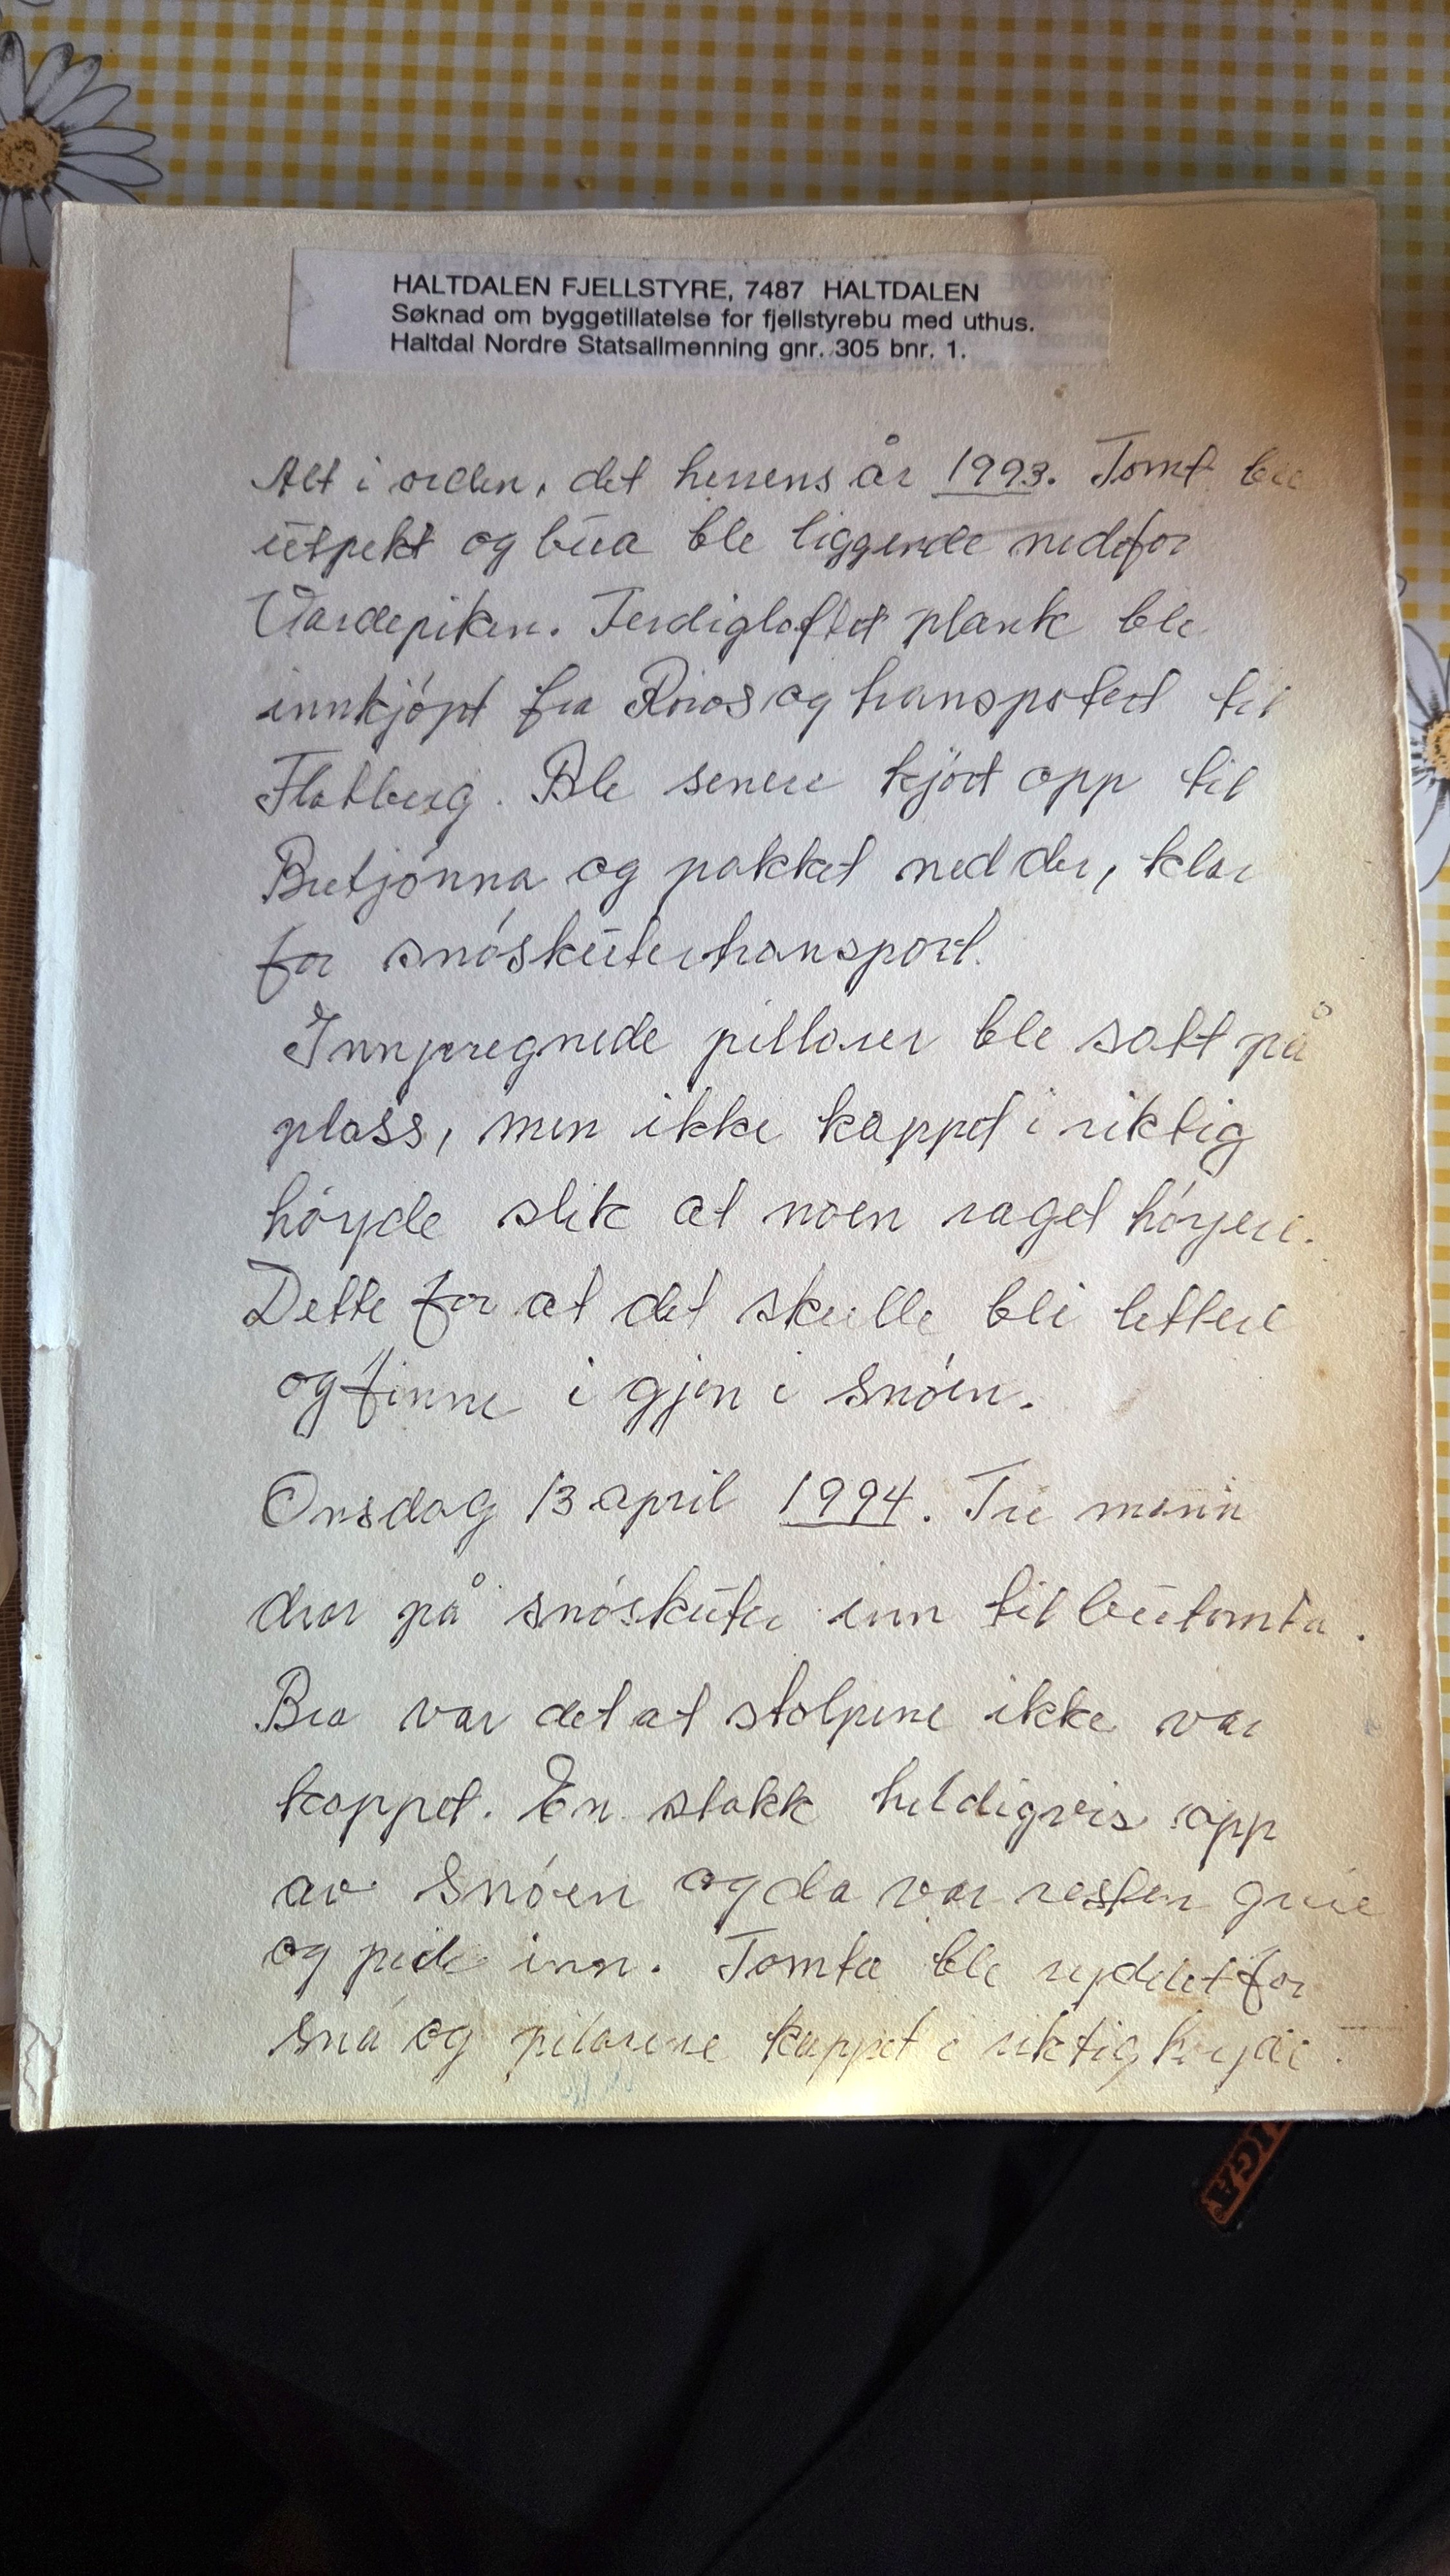 HALTDALEN FJELLSTYRE, 7487 HALTDALEN
Søknad om byggetillatelse for fjellstyrebu med uthus.
Haltdal Nordre Statsallmenning gnr. 305 bnr. 1.
Alt i orden, det herrens år 1993. Tomt ble
utpekt og bua ble liggende nedefor
Vardepiken. Ferdigloftet plank ble
innkjöpt fra Røros og transpotert til
Flatberg. Ble senere kjört opp til
Bretjönna og pakket ned der, klar
for snöskutertransport.
Innpregnede pillarer ble satt på
plass, men ikke kappet i riktig
höyde slik at noen raget höyere.
Dette for at det skulle bli lettere
og finne i gjen i snöen.
Onsdag 13 april 1994. Tre mann
drar på snöskuter inn til butomta.
Bra var det at stolpene ikke var
kappet. En stakk heldigvis opp
av snöen og da var resten greie
og peile inn. Tomta ble ryddet for
snö og pilarene kappet i riktig höyde.
IGA